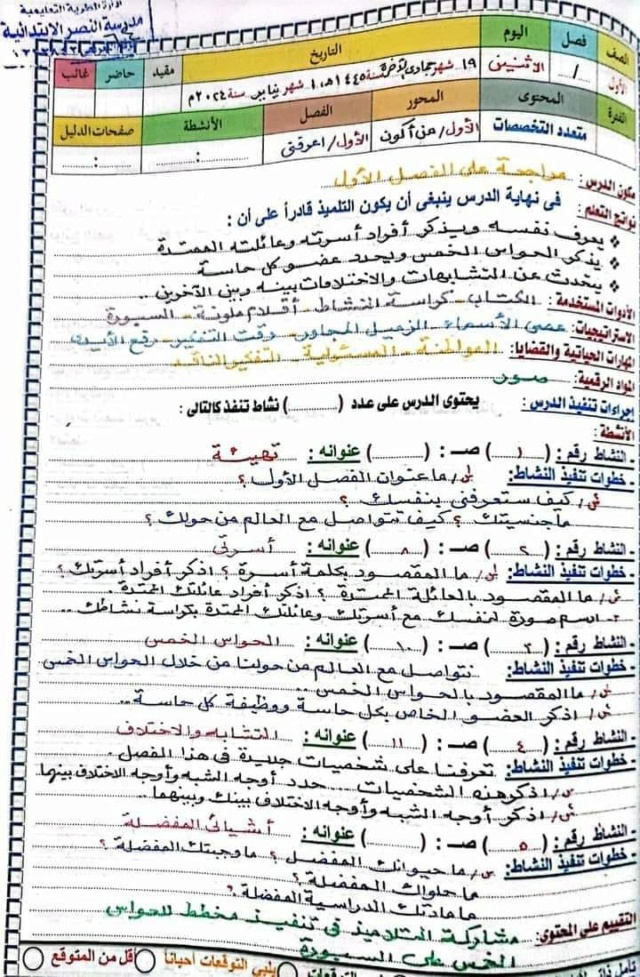 إدارة المطرية التعليمية
مدرسة النصر الابتدائية
الصف فصل اليوم التاريخ مقيد حاضر غائب
الأول /... الاثنين ١٩ شهر جمادى الآخرة سنة ١٤٤٥هـ ، ١ شهر يناير سنة ٢٠٢٤م
الفترة المحتوى المحور الفصل الأنشطة صفحات الدليل
متعدد التخصصات الأول/ من أكون الأول/ اعرفني : :
عنوان الدرس : مراجعة على الفصل الأول
نواتج التعلم : في نهاية الدرس ينبغى أن يكون التلميذ قادراً على أن :
❖ يعرف نفسه ويذكر أفراد أسرته وعائلته الممتدة
❖ يذكر الحواس الخمس ويحدد عضو كل حاسة
❖ يتحدث عن التشابهات والاختلافات بينه وبين الآخرين ..
الأدوات المستخدمة : الكتاب - كراسة النشاط - أقلام ملونة - السبورة
الاستراتيجيات : عصى الأسماء - الزميل المجاور - وقت التفكير - رفع الأيدي
المهارات الحياتية والقضايا : المواطنة - المسئولية - التفكير الناقد
المواد الرقمية : صور
إجراءات تنفيذ الدرس : يحتوى الدرس على عدد ( ) نشاط تنفذ كالتالى :
الأنشطة :
- النشاط رقم : ( ١ ) صـ : ( ) عنوانه : تهيئة
- خطوات تنفيذ النشاط : س/ ما عنوان الفصل الأول ؟
س/ كيف ستعرفني بنفسك ؟
ما جنسيتك ؟ كيف تتواصل مع العالم من حولك ؟
- النشاط رقم : ( ٢ ) صـ : ( ٨ ) عنوانه : أسرتي
- خطوات تنفيذ النشاط : س/ ما المقصود بكلمة أسرة ؟ اذكر أفراد أسرتك ؟
س/ ما المقصود بالعائلة الممتدة ؟ اذكر أفراد عائلتك الممتدة
- ارسم صورة لنفسك مع أسرتك وعائلتك الممتدة بكراسة نشاطك ..
- النشاط رقم : ( ٣ ) صـ : ( ١٠ ) عنوانه : الحواس الخمس
- خطوات تنفيذ النشاط : نتواصل مع العالم من حولنا من خلال الحواس الخمس
س/ ما المقصود بالحواس الخمس ..
س/ اذكر العضو الخاص بكل حاسة ووظيفة كل حاسة ..
- النشاط رقم : ( ٤ ) صـ : ( ١١ ) عنوانه : التشابه والاختلاف
- خطوات تنفيذ النشاط : تعرفنا على شخصيات جديدة في هذا الفصل .
س/ اذكر هذه الشخصيات .... حدد أوجه الشبه وأوجه الاختلاف بينهما
س/ اذكر أوجه الشبه وأوجه الاختلاف بينك وبينهما ..
- النشاط رقم : ( ٥ ) صـ : ( ) عنوانه : أشيائي المفضلة
- خطوات تنفيذ النشاط : س/ ما حيوانك المفضل ؟ ما وجبتك المفضلة ؟
ما حلواك المفضلة ؟
ما مادتك الدراسية المفضلة ؟
التقييم على المحتوى : مشاركة التلاميذ في تنفيذ مخطط للحواس
الخمس على السبورة
يلبي التوقعات أحياناً أقل من المتوقع